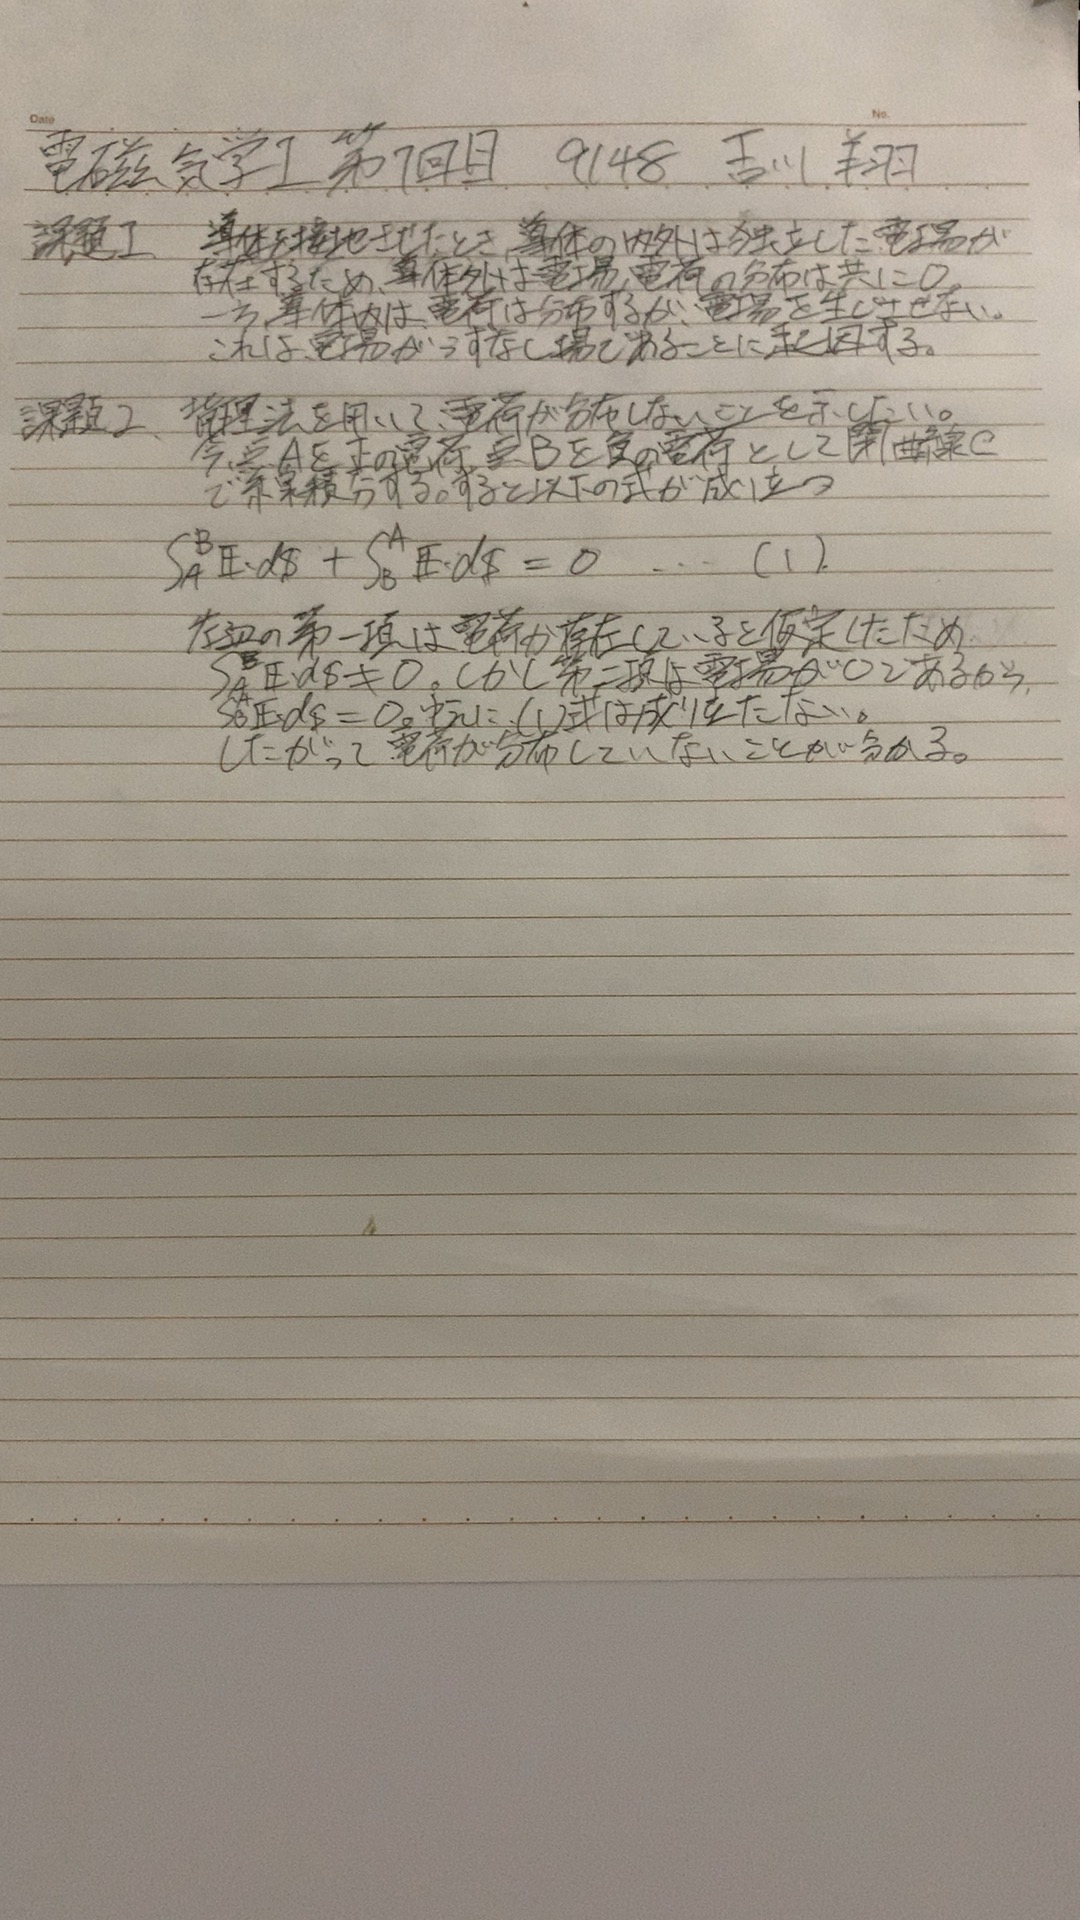 Date
No.
電磁気学I 第7回目 9148 吉川 翔
課題1 導体を接地させたとき、導体の内外は独立した電場が
存在するため、導体外は電場、電荷の分布は共に0
一方、導体内は、電荷は分布するが、電場を生じさせない。
これは、電場がうずなし場であることに起因する。
課題2 背理法を用いて、電荷が分布しないことを示したい。
今、点Aを正の電荷 点Bを負の電荷として閉曲線C
で線積分する。すると以下の式が成り立つ
∫_A^B E・dS + ∫_B^A E・dS = 0 … (1)
左辺の第一項は電荷が存在していると仮定したため
∫_A^B E・dS ≠ 0。しかし第二項は電場が0であるから、
∫_B^A E・dS = 0。 (1)式は成り立たない。
したがって電荷が分布していないことが分かる。